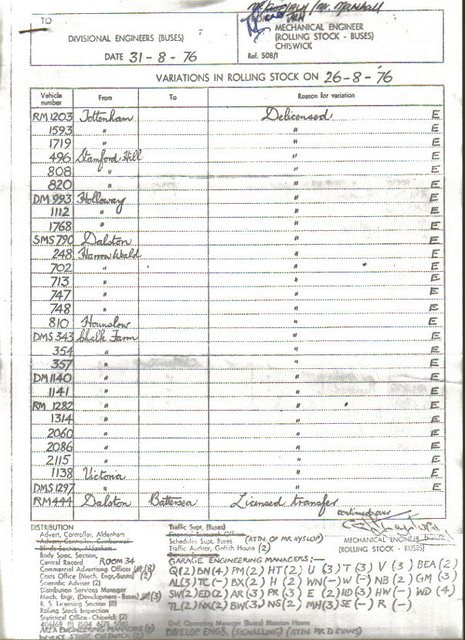 TO
DIVISIONAL ENGINEERS (BUSES)
DATE 31-8-76
MECHANICAL ENGINEER
(ROLLING STOCK - BUSES)
CHISWICK
Ref. 508/1
VARIATIONS IN ROLLING STOCK ON 26-8-76
Vehicle number From To Reason for variation
RM 1203 Tottenham Delicensed E
1593 " " E
1719 " " E
496 Stamford Hill " E
808 " " E
820 " " E
DM 993 Holloway " E
1112 " " E
1768 " " E
SMS 790 Dalston " E
248 Harrow Weald " E
702 " " E
713 " " E
747 " " E
748 " " E
810 Hounslow " E
DMS 343 Chalk Farm " E
354 " " E
357 " " E
DM 1140 " " E
1141 " " E
RM 1282 " " E
1314 " " E
2060 " " E
2086 " " E
2115 " " E
1138 Victoria " E
DMS 1297 " " E
RM 444 Dalston Battersea Licensed transfer E
MECHANICAL ENGINEER
(ROLLING STOCK - BUSES)
DISTRIBUTION
Advert. Controller, Aldenham
Body Spec. Section,
Central Record ROOM 34
Commercial Advertising Officer (8)
Costs Office (Mech. Engr.-Buses) (2)
Scientific Adviser (2)
Distribution Services Manager
Mech. Engr. (Development - Buses) (3)
R. S. Licensing Section (8)
Rolling Stock Inspection
Statistical Office - Chiswick (2)
Traffic Supt. (Buses)
Schedules Supt. Buses (ATTN. OF MR HYSLOP)
Traffic Auditor, Griffith House (2)
GARAGE ENGINEERING MANAGERS:-
Q(2) BN(4) PM(2) HT(2) U(3) T(3) V(3) BEA(2)
AL(3) TC(-) BX(2) H(2) WN(-) W(-) NB(2) GM(3)
SW(2) ED(2) AR(3) PR(3) E(2) HD(3) HW(-) WD(4)
TL(2) NX(2) BW(3) NS(2) MH(3) SE(-) R(-)